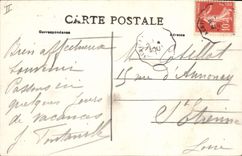 II
CARTE POSTALE
Correspondance
Adresse
Bien affectueux
souvenir
Passons ici
quelques jours
de vacances
J. Fontanelle
15 rue d'Annonay
St Etienne
Loire
10